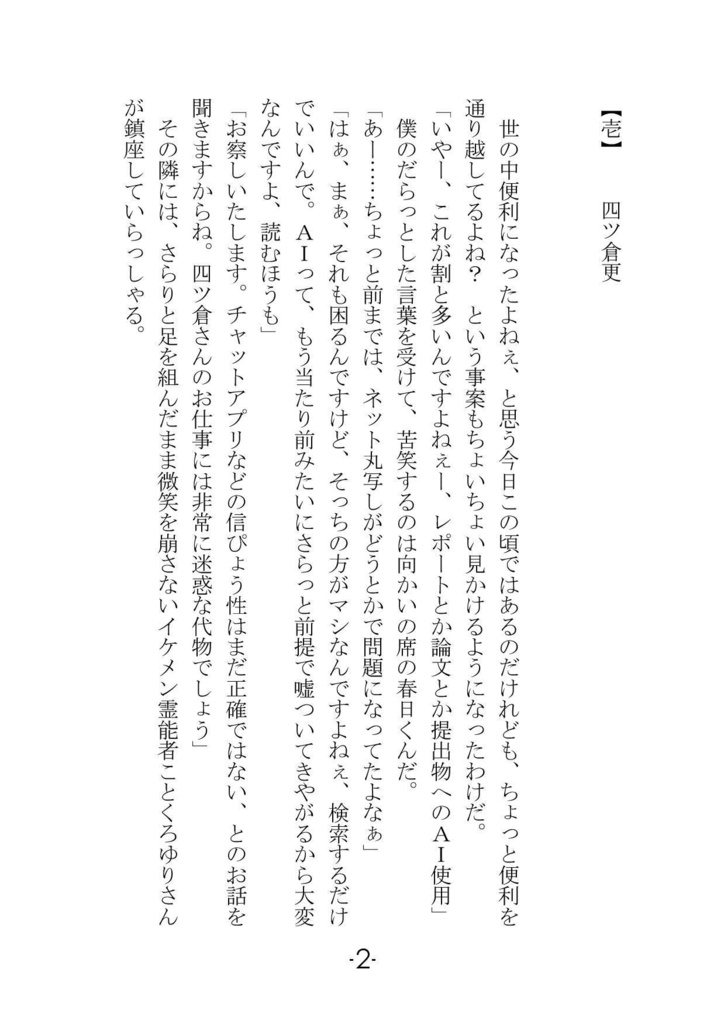 【壱】　四ツ倉更
　世の中便利になったよねぇ、と思う今日この頃ではあるのだけれども、ちょっと便利を
通り越してるよね？　という事案もちょいちょい見かけるようになったわけだ。
「いやー、これが割と多いんですよねぇー、レポートとか論文とか提出物へのＡＩ使用」
　僕のだらっとした言葉を受けて、苦笑するのは向かいの席の春日くんだ。
「あー……ちょっと前までは、ネット丸写しがどうとかで問題になってたよなぁ」
「はぁ、まぁ、それも困るんですけど、そっちの方がマシなんですよねぇ、検索するだけ
でいいんで。ＡＩって、もう当たり前みたいにさらっと前提で嘘ついてきやがるから大変
なんですよ、読むほうも」
「お察しいたします。チャットアプリなどの信ぴょう性はまだ正確ではない、とのお話を
聞きますからね。四ツ倉さんのお仕事には非常に迷惑な代物でしょう」
　その隣には、さらりと足を組んだまま微笑を崩さないイケメン霊能者ことくろゆりさん
が鎮座していらっしゃる。
-2-